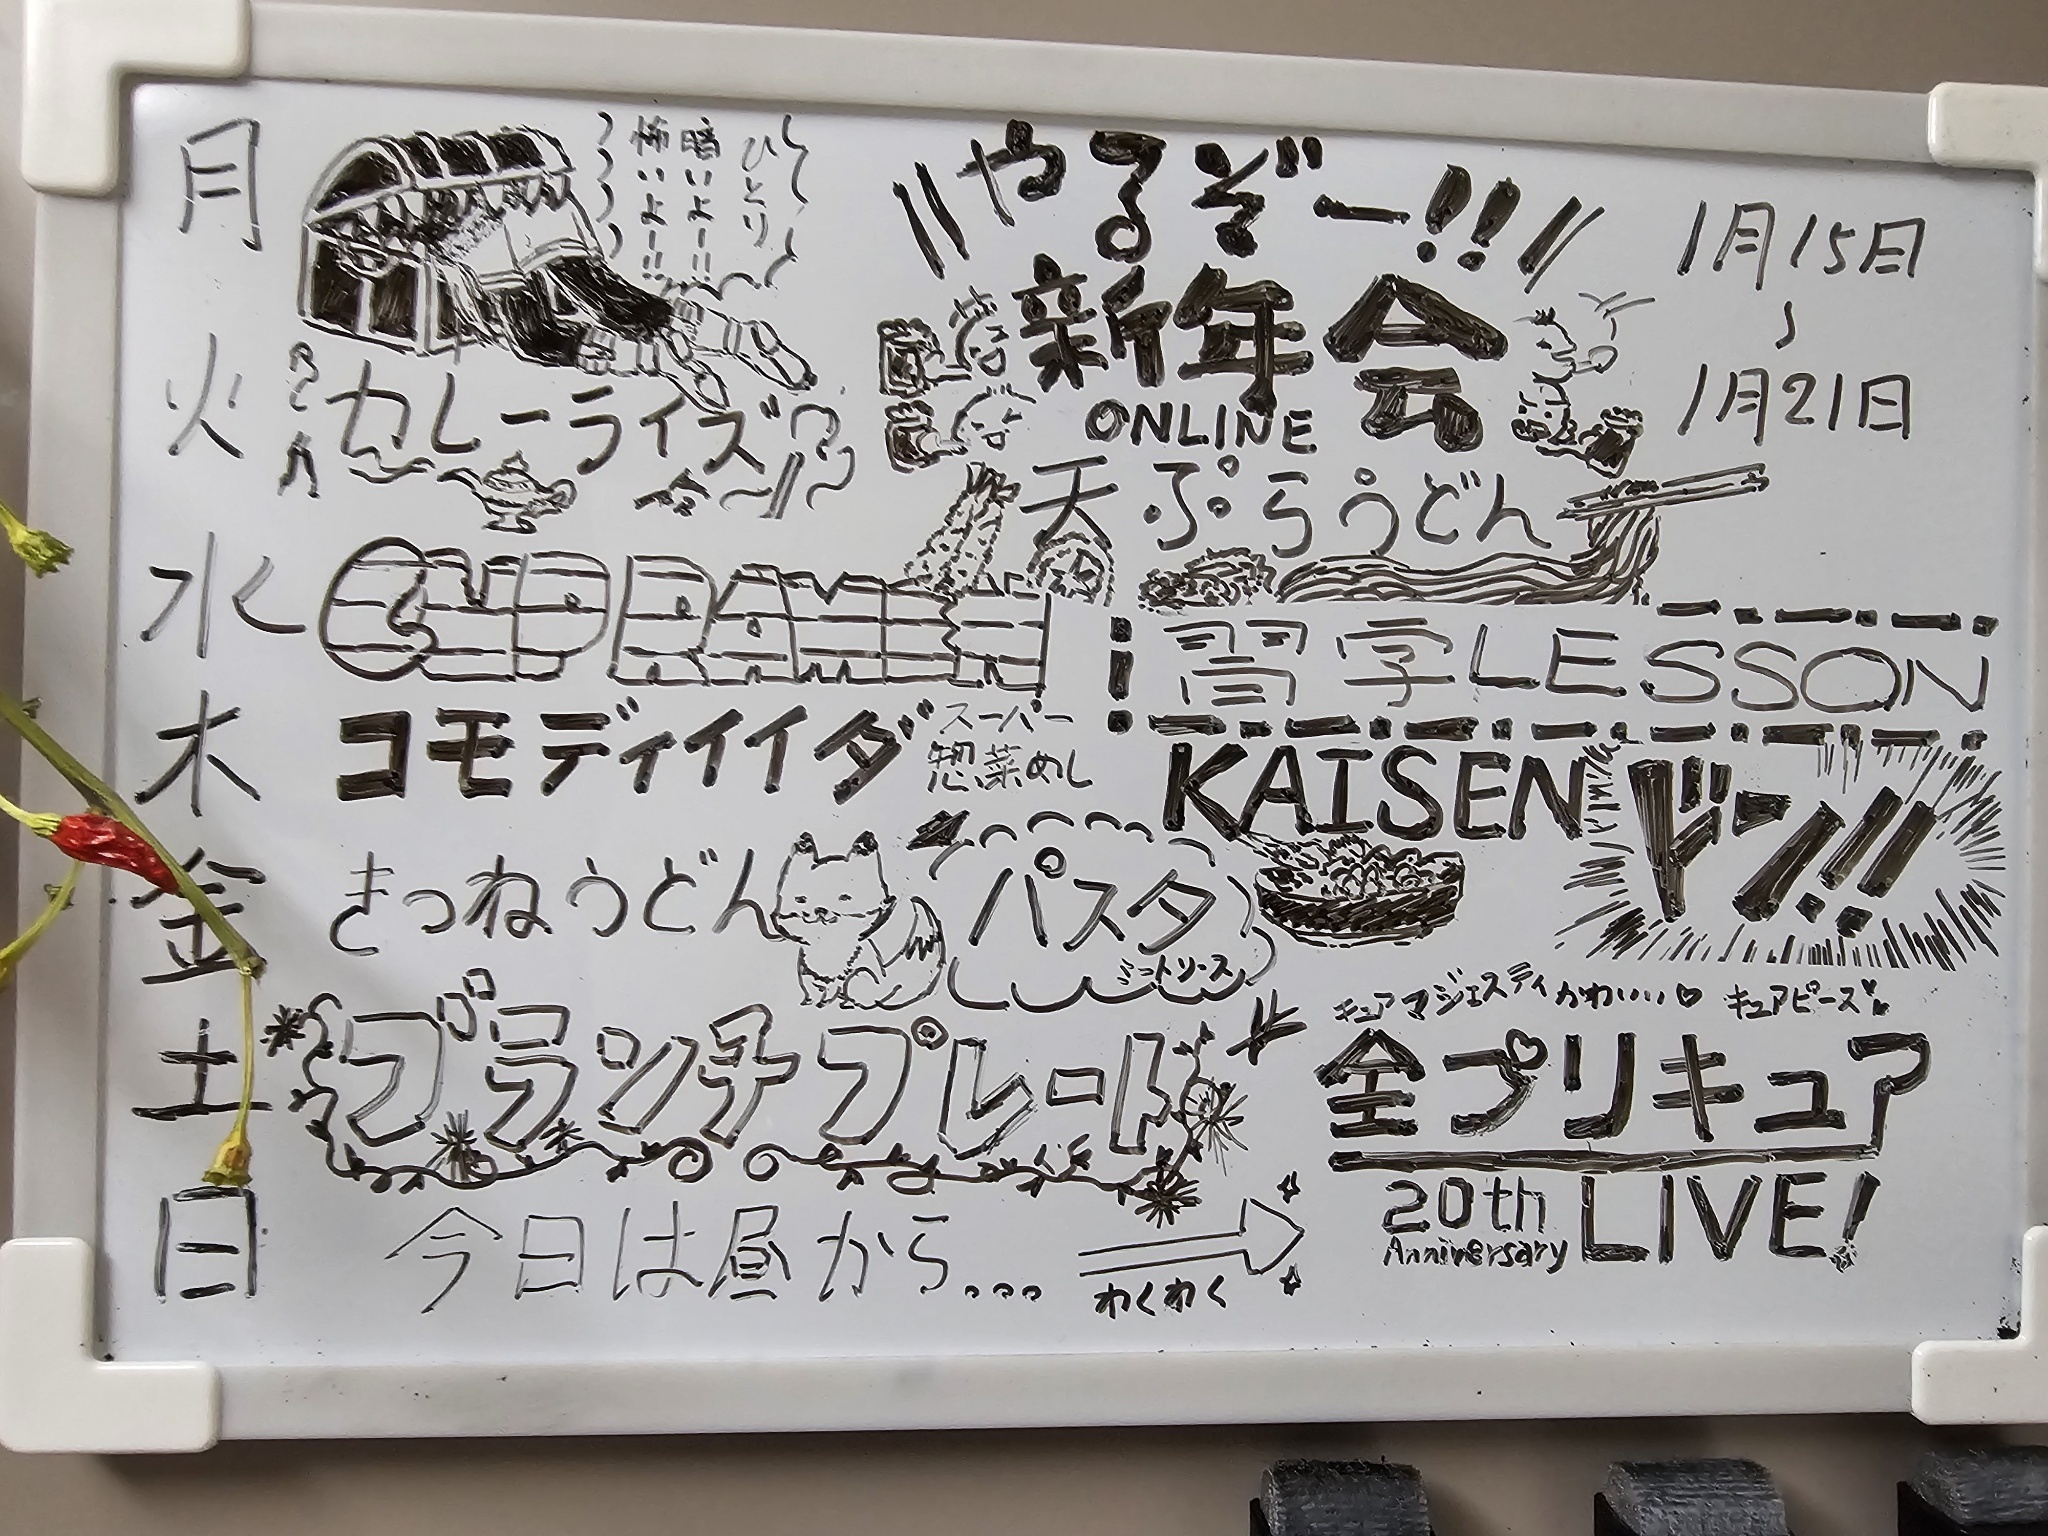 月
ひとり
暗いよー!!
怖いよー!!
やるぞー!!
新年会
ONLINE
1月15日
〜
1月21日
火
カレーライス
天ぷらうどん
水
習字LESSON
木
コモディイイダ
スーパー
惣菜めし
KAISEN
ドン!!
金
きつねうどん
パスタ
ミートソース
土
ブランチプレート
キュアマジェスティ かわいい♡ キュアピース"
全プリキュア
20th
Anniversary
LIVE!
日
今日は昼から...
わくわく